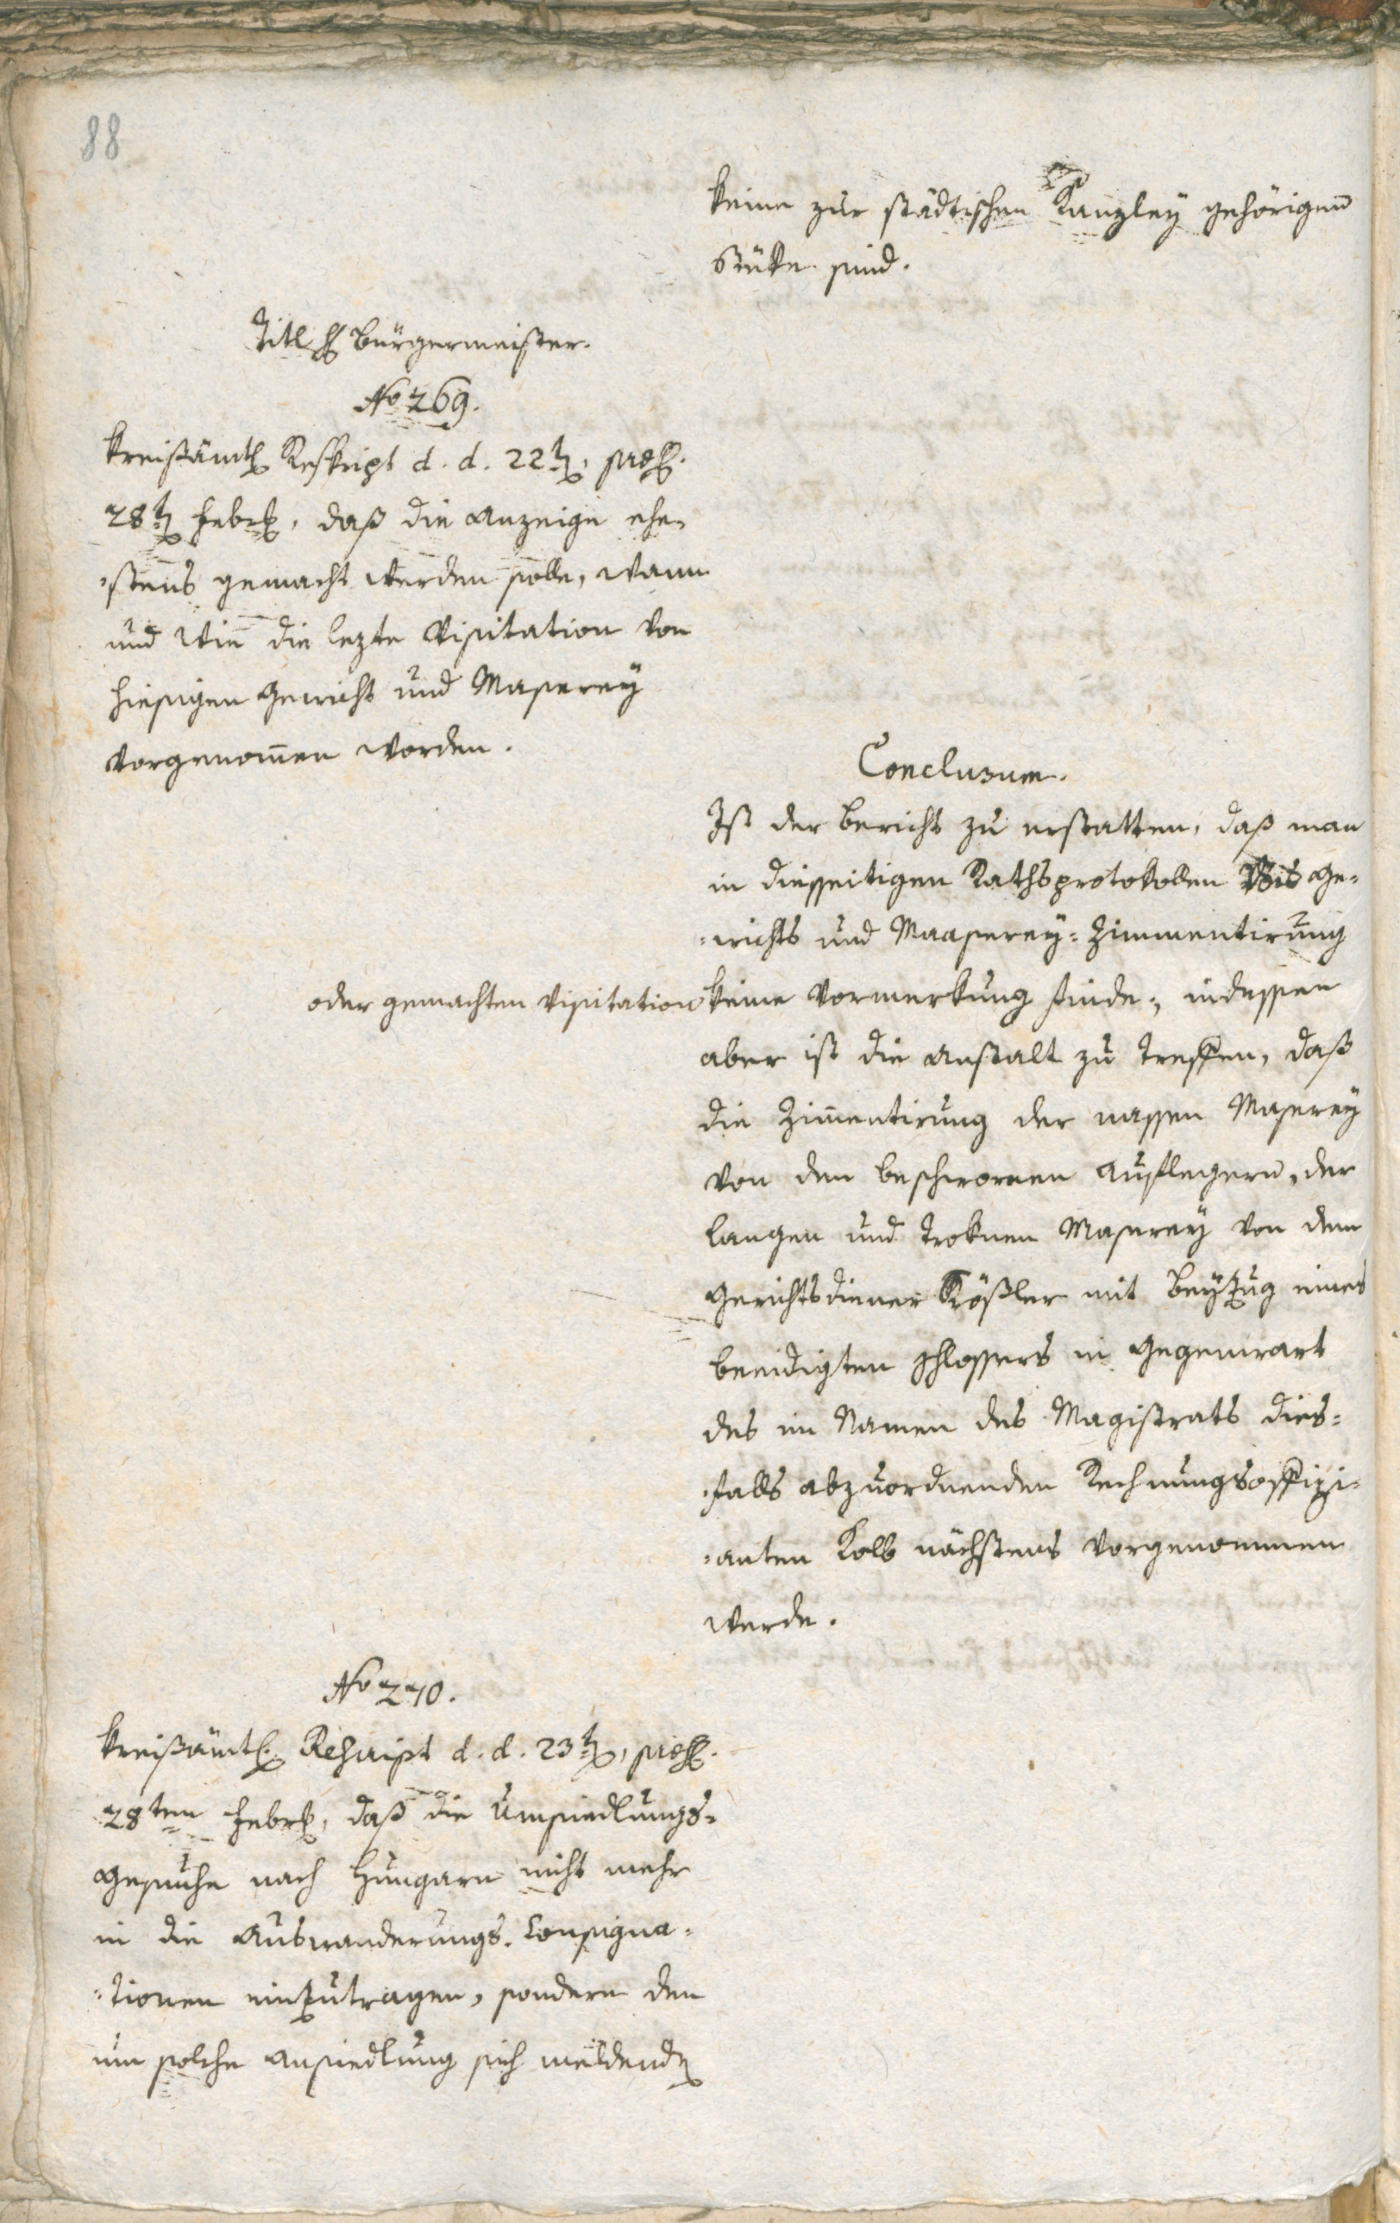 88
keine zur städtischen Kanzley gehörigen
Stüke sind.
Titl H Bürgermeister.
No 269.
Kreißämtl Reskript d. d. 22t, präs.
28t Febr, daß die Anzeige ehe-
-stens gemacht werden solle, wann
und wie die lezte Visitation von
hiesigen Gewicht und Masserey
vorgenomen worden.
Conclusum.
Ist der Bericht zu erstatten, daß man
in diesseitigen Rathsprotokollen Ge-
-wichts und Maasserey-Zimmentirung
oder gemachten Visitation keine Vormerkung finde, indessen
aber ist die Anstalt zu treffen, daß
die Zimentirung der nassen Masserey
von den beschwornen Auflegern, der
langen und troknen Masserey von dem
Gerichtsdiener Rößler mit Beyzug eines
beeidigten Schlossers in Gegenwart
des im Namen des Magistrats dies-
-falls abzuordnenden Rechnungsoffizi-
-anten Kolb nächstens vorgenommen
werde.
No 270.
Kreißämtl. Rescript d. d. 23t, präs.
28ten Febr, daß die Umsiedlungs-
Gesuche nach Hungarn nicht mehr
in die Auswanderungs-Consigna-
-tionen einzutragen, sondern den
um solche Ansiedlung sich meldend